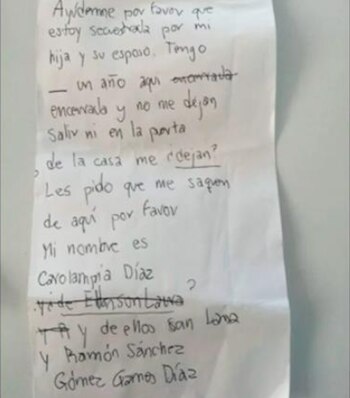 Ayúdenme por favor que
estoy secuestrada por mi
hija y su esposo. Tengo
_ un año aquí encerrada
encerrada y no me dejan
salir ni en la puerta
de la casa me ¿dejan?
Les pido que me saquen
de aquí por favor
Mi nombre es
Carolampia Díaz
?
y de ellos san Lana
y Ramón Sánchez
Gómez Gamos Díaz